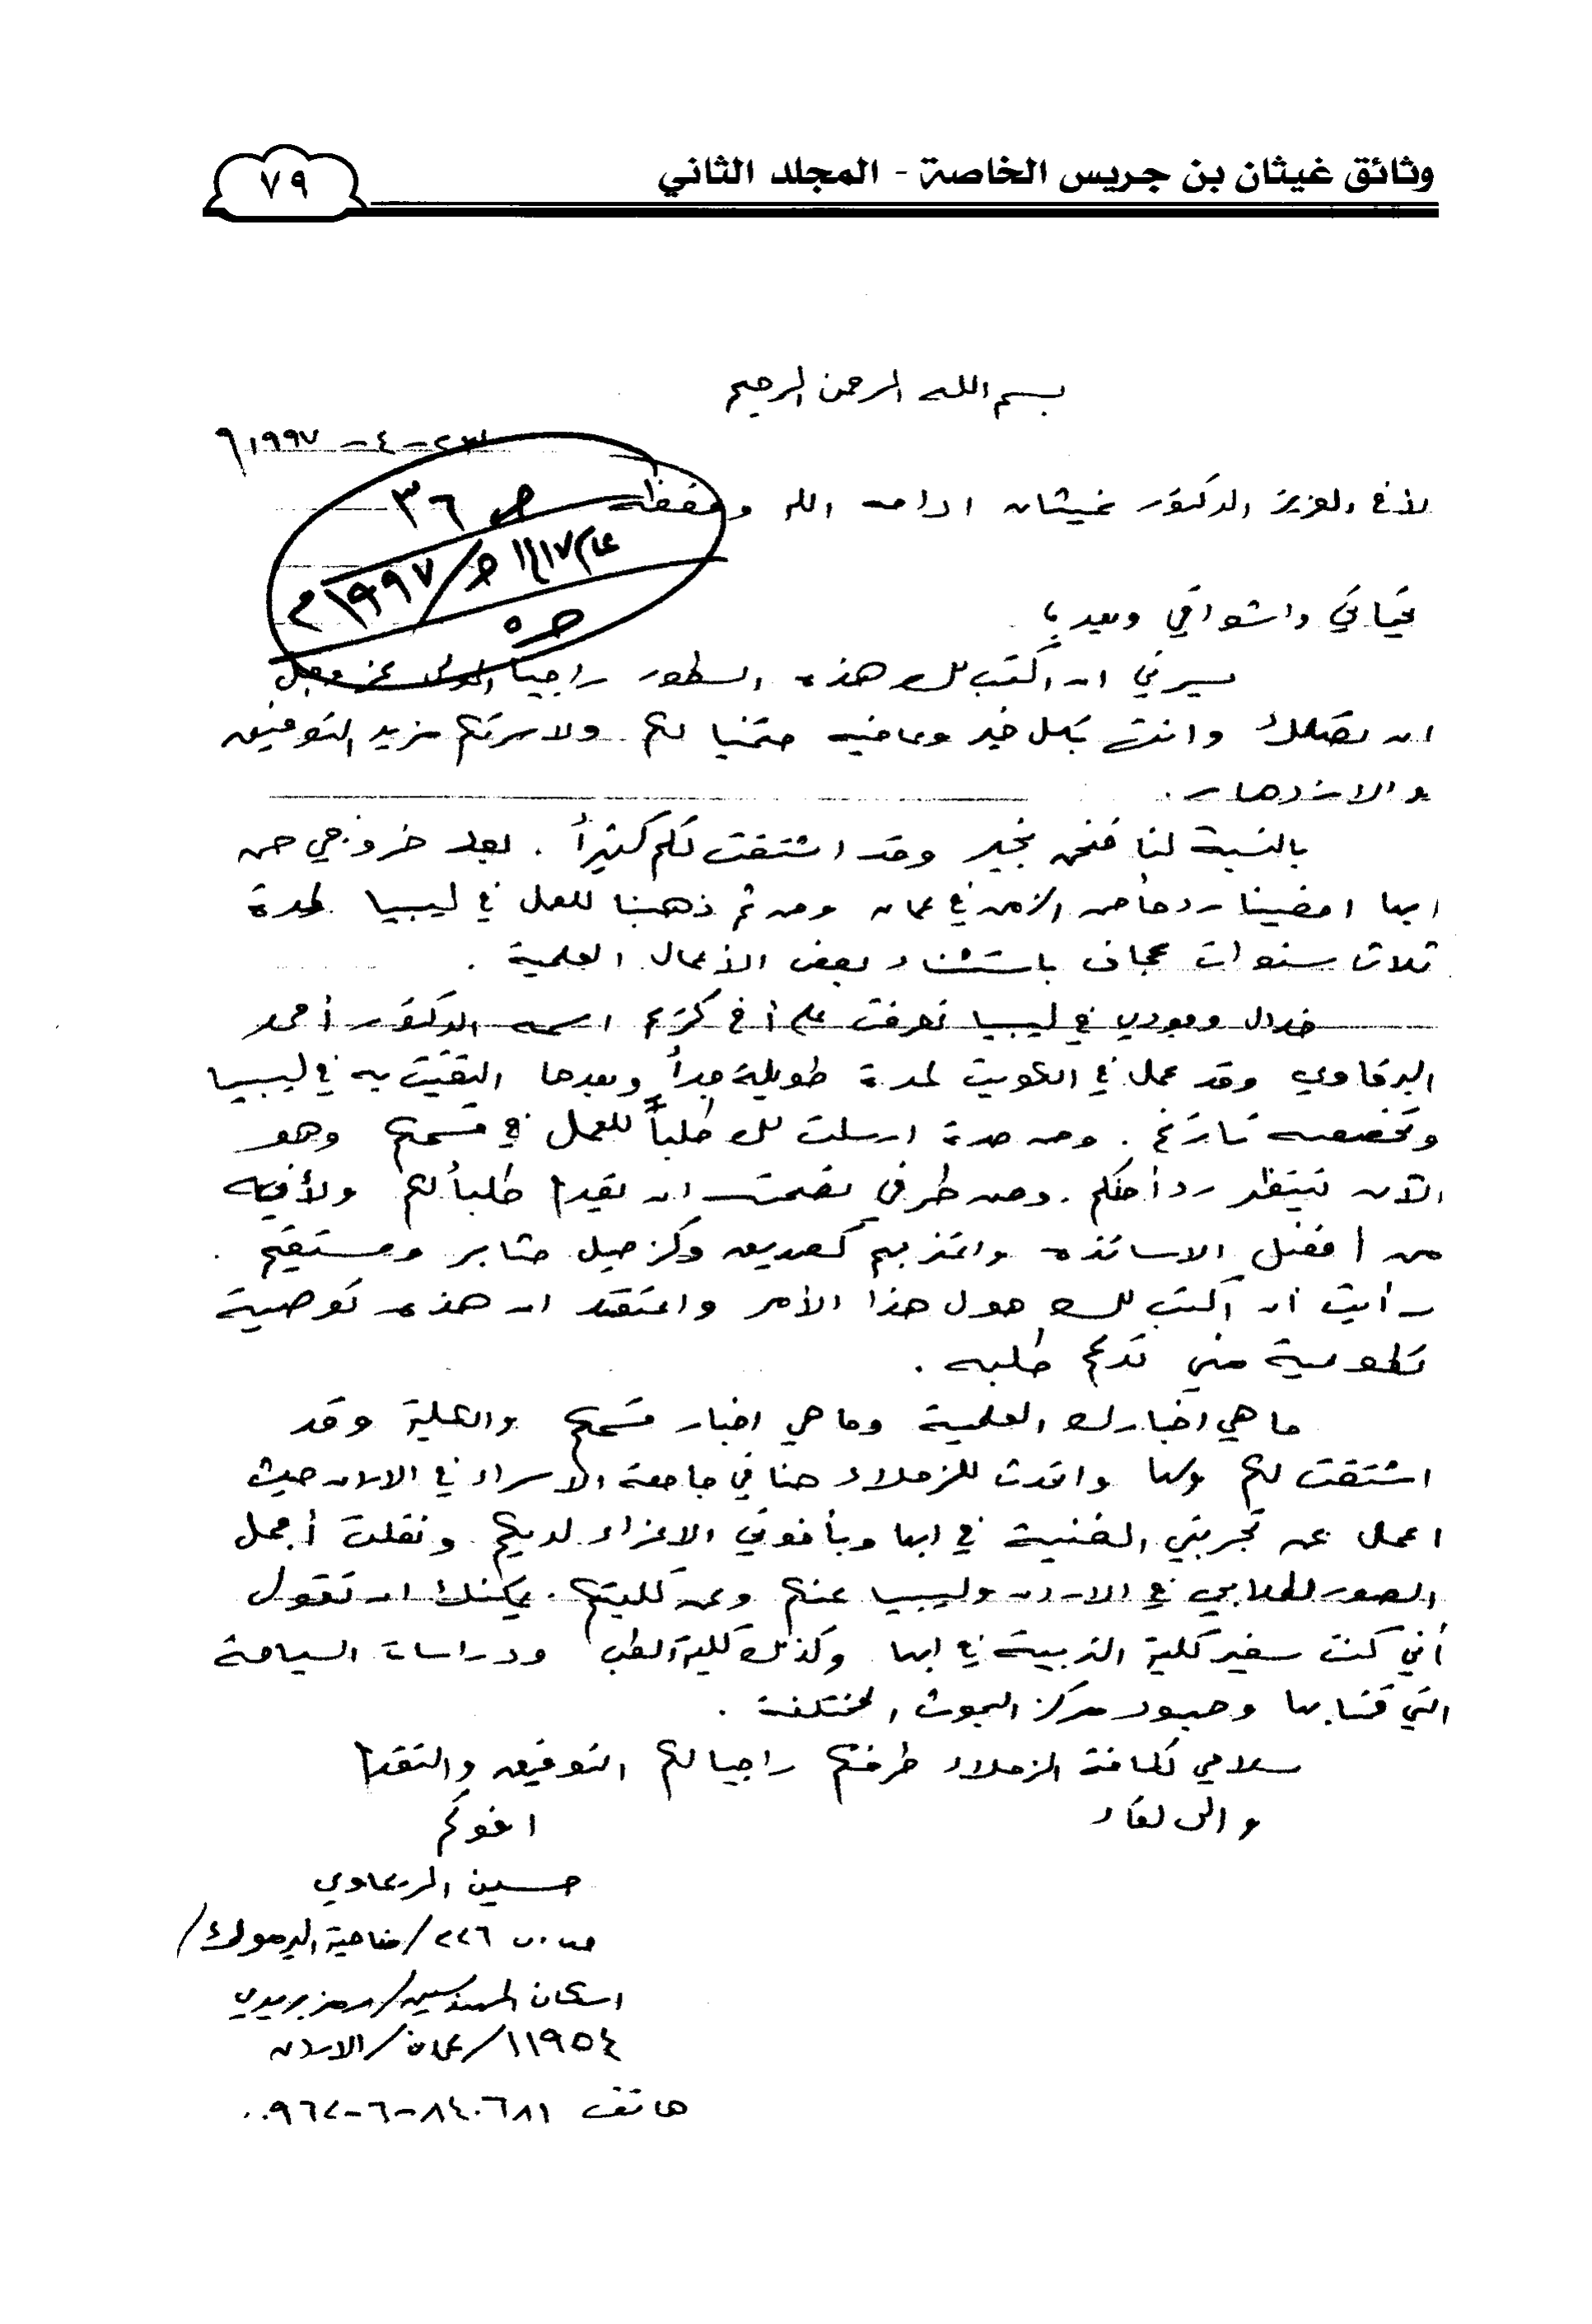 وثائق غيثان بن جريس الخاصة - المجلد الثاني
٧٩
بسم الله الرحمن الرحيم
٢٣-٤-١٩٩٧م
الأخ العزيز الدكتور غيثان ادامه الله وحفظه
ص ٣٦
١٩٩٧م
تحياتي واشواقي وبعد،
يسرني ان اكتب لك هذه السطور راجيا المولى عز وجل
ان تصلك وانت بكل خير وعافيه متمنيا لكم ولاسرتكم مزيد التوفيق
والازدهار.
بالنسبة لنا فنحن بخير وقد اشتقت لكم كثيراً. بعد خروجي من
ابها امضينا ردحا من الزمن في عمان ومن ثم ذهبنا للعمل في ليبيا لمدة
ثلاث سنوات عجاف باستثناء بعض الأعمال العلمية.
خلال وجودي في ليبيا تعرفت على أخ كريم اسمه الدكتور أحمد
البرقاوي وقد عمل في الكويت لمدة طويلة جداً وبعدها التقيت به في ليبيا
وتخصصه تاريخ. ومن مدة ارسلت لك طلباً للعمل في قسمكم وهو
الآن ينتظر رداً منكم. ومن طرفي نصحت ان يقدم طلباً لكم ولأنه
من أفضل الاساتذه واعتز به كصديق وكزميل مثابر ومستقيم.
رأيت أن اكتب لك حول هذا الأمر واعتقد ان هذه توصية
منى تدعم طلبه.
ما هي اخبارك العلمية وما هي اخبار قسمكم والكلية وقد
اشتقت لكم ولها للزملاء هنا في جامعة الاسراء في الاردن حيث
اعمل عن تجربتي الغنية في ابها وبأخوتي الاعزاء لديكم ونقلت أجمل
الصور لطلابي في الاردن وليبيا عنكم وعن كليتكم. يمكنك ان تقول
أني كنت سفير كلية التربية في ابها وكذلك كلية الطب ودراسات السياحة
التي قمنا بها وجهود مركز البحوث المختلفة.
سلامي لكافة الزملاء طرفكم راجيا لكم التوفيق والتقدم
والى لقاء
اخوكم
حسين الريماوي
ص.ب ٢٢٦/ضاحية اليرموك/
اسكان المهندسين/رمز بريدي
١١٩٥٤/عمان/الاردن
هاتف ٨٤٠٦٨١-٦-٠٠٩٦٢